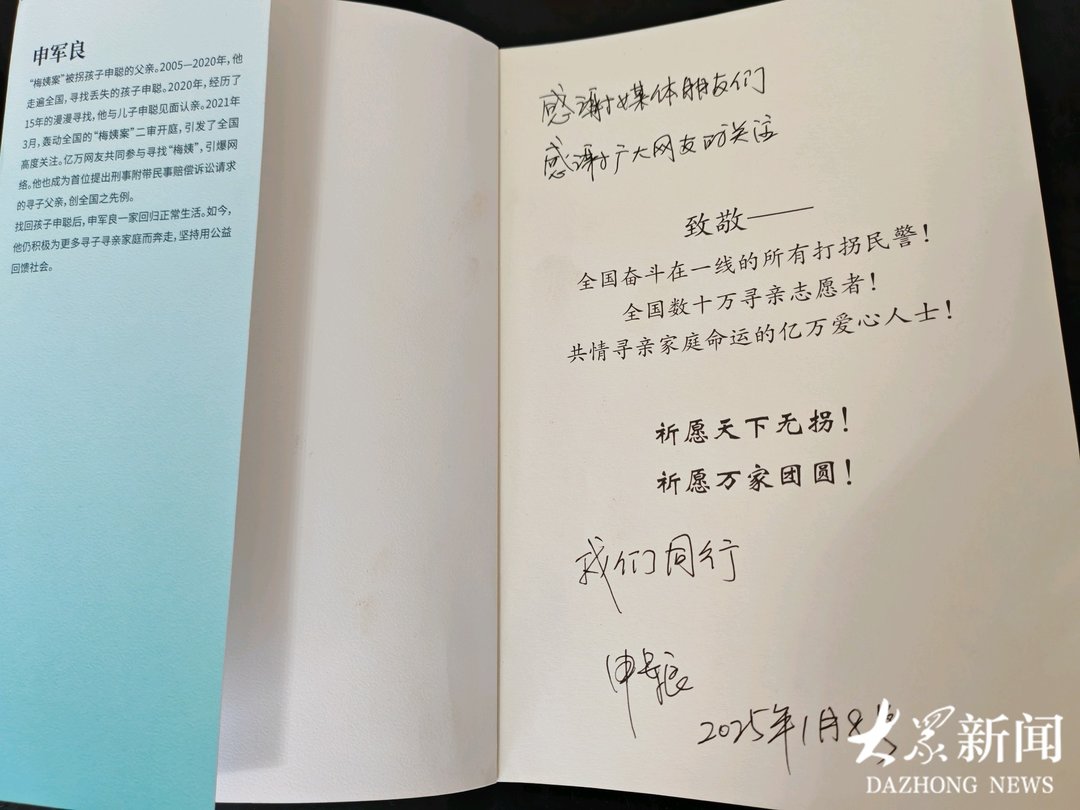 申军良
“梅姨案”被拐孩子申聪的父亲。2005—2020年，他
走遍全国，寻找丢失的孩子申聪。2020年，经历了
15年的漫漫寻找，他与儿子申聪见面认亲。2021年
3月，轰动全国的“梅姨案”二审开庭，引发了全国
高度关注。亿万网友共同参与寻找“梅姨”，引爆网
络。他也成为首位提出刑事附带民事赔偿诉讼请求
的寻子父亲，创全国之先例。
找回孩子申聪后，申军良一家回归正常生活。如今，
他仍积极为更多寻子寻亲家庭而奔走，坚持用公益
回馈社会。
感谢媒体朋友们
感谢广大网友的关注
致敬——
全国奋斗在一线的所有打拐民警！
全国数十万寻亲志愿者！
共情寻亲家庭命运的亿万爱心人士！
祈愿天下无拐！
祈愿万家团圆！
我们同行
申军良
2025年1月8号
大众新闻
DAZHONG NEWS